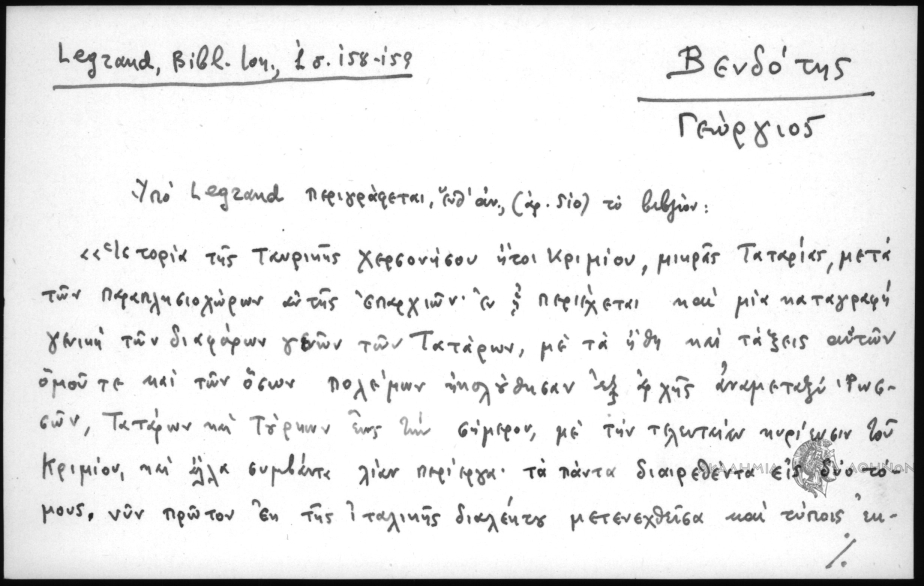 Legrand, Bibl. Ion., 1 σ. 158-159
Βενδότης
Γεώργιος
Ὑπὸ Legrand περιγράφεται, ἔνθ' ἀν., (ἀρ. 510) τὸ βιβλίον:
«Ἱστορία τῆς Ταυρικῆς Χερσονήσου ἤτοι Κριμίου, μικρᾶς Ταταρίας, μετὰ
τῶν παραπλησιοχώρων αὐτῆς ἐπαρχιῶν· ἐν ᾗ περιέχεται καὶ μία καταγραφὴ
γενικὴ τῶν διαφόρων γενῶν τῶν Τατάρων, μὲ τὰ ἤθη καὶ τάξεις αὐτῶν
ὁμοῦ τε καὶ τῶν ὅσων πολέμων ἠκολούθησαν ἐξ ἀρχῆς ἀναμεταξὺ Ῥωσ-
σῶν, Τατάρων καὶ Τούρκων ἕως τὴν σήμερον, μὲ τὴν τελευταίαν κυρίευσιν τοῦ
Κριμίου, καὶ ἄλλα συμβάντα λίαν περίεργα· τὰ πάντα διαιρεθέντα εἰς δύο τό-
μους. νῦν πρῶτον ἐκ τῆς ἰταλικῆς διαλέκτου μετενεχθεῖσα καὶ τύποις ἐκ-
./.
ΑΚΑΔΗΜΙΑ ΑΘΗΝΩΝ